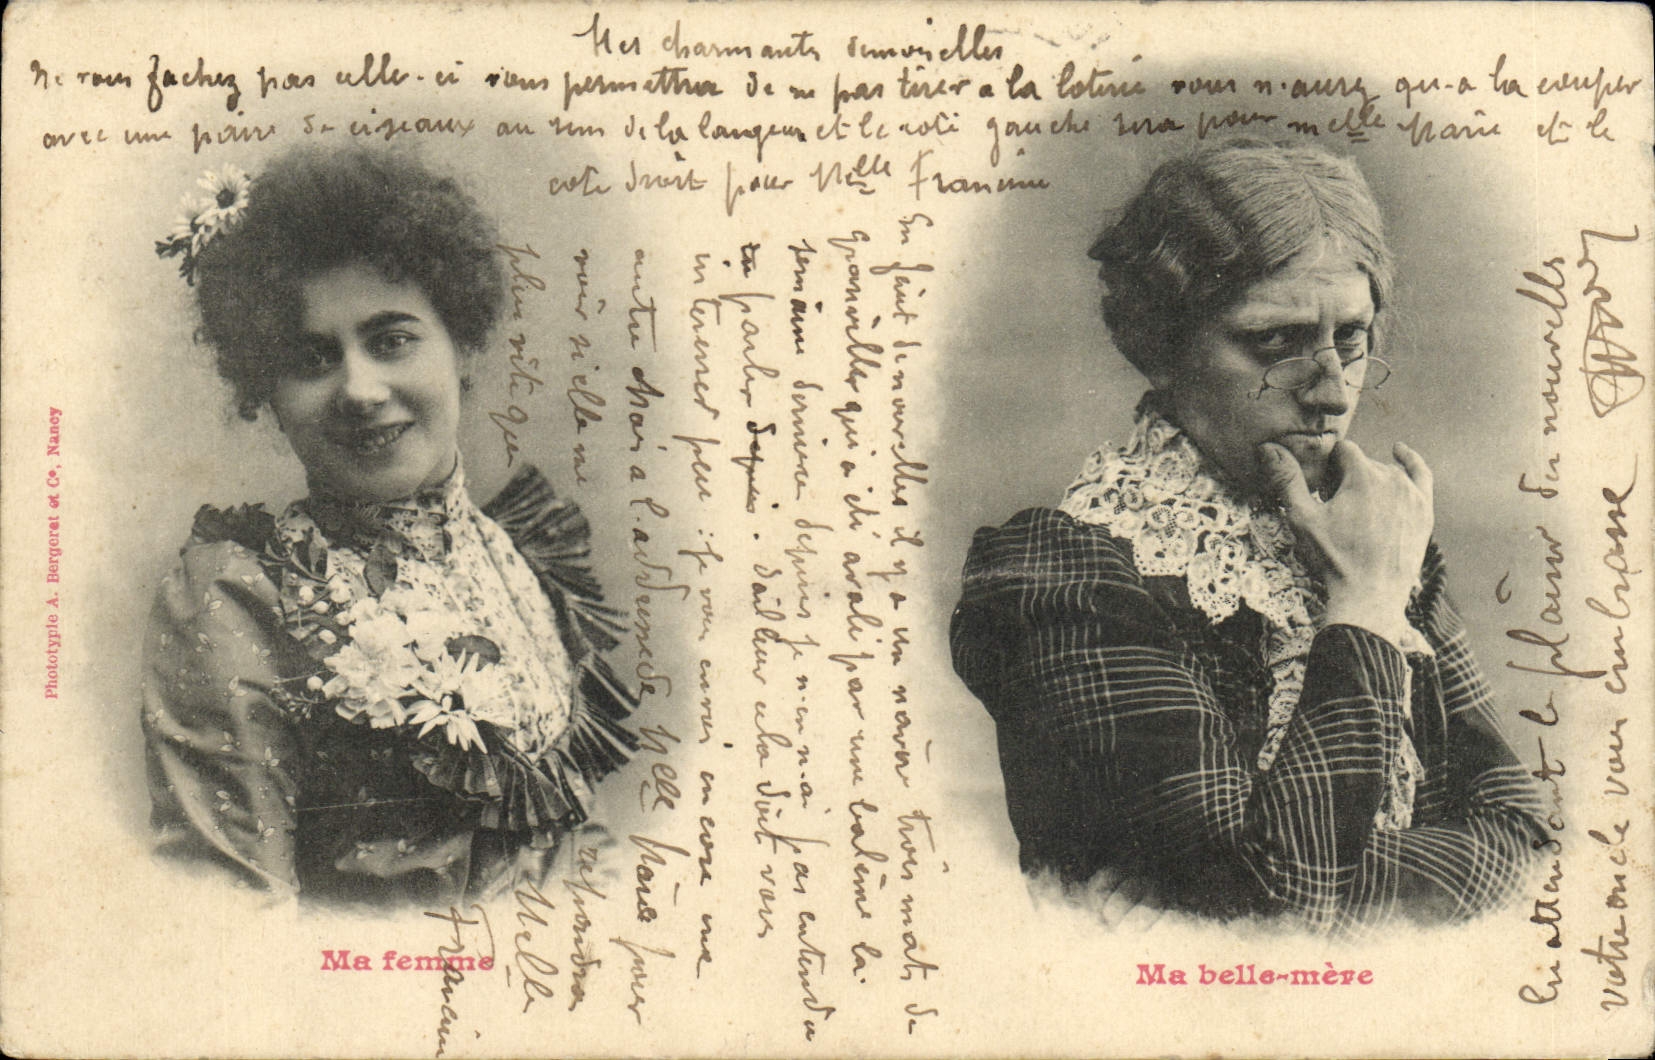 Mes charmantes demoiselles
Ne vous fachez pas celle-ci vous permettra de ne pas tirer a la loterie vous n'aurez qu-a la couper
avec une paire de ciseaux au sens de la largeur et le coté gauche sera pour melle Marie et le
coté droit pour Melle Francine
En fait de nouvelles il y a un navire trois mats de
granville qui a été avali par une baleine la
semaine derniere depuis je n-en n-ai pas entendu
parler depuis. d'ailleur cela doit vous
interesser peu : je vous envoi encore une
autre mais a l'adresse de Melle Marie pour
voir si elle me repondra
plus vite que Melle
Francine
En attendant le plaisir des nouvelles
votre oncle vous embrasse
Phototypie A. Bergeret et Cᵉ, Nancy
Ma femme
Ma belle-mère